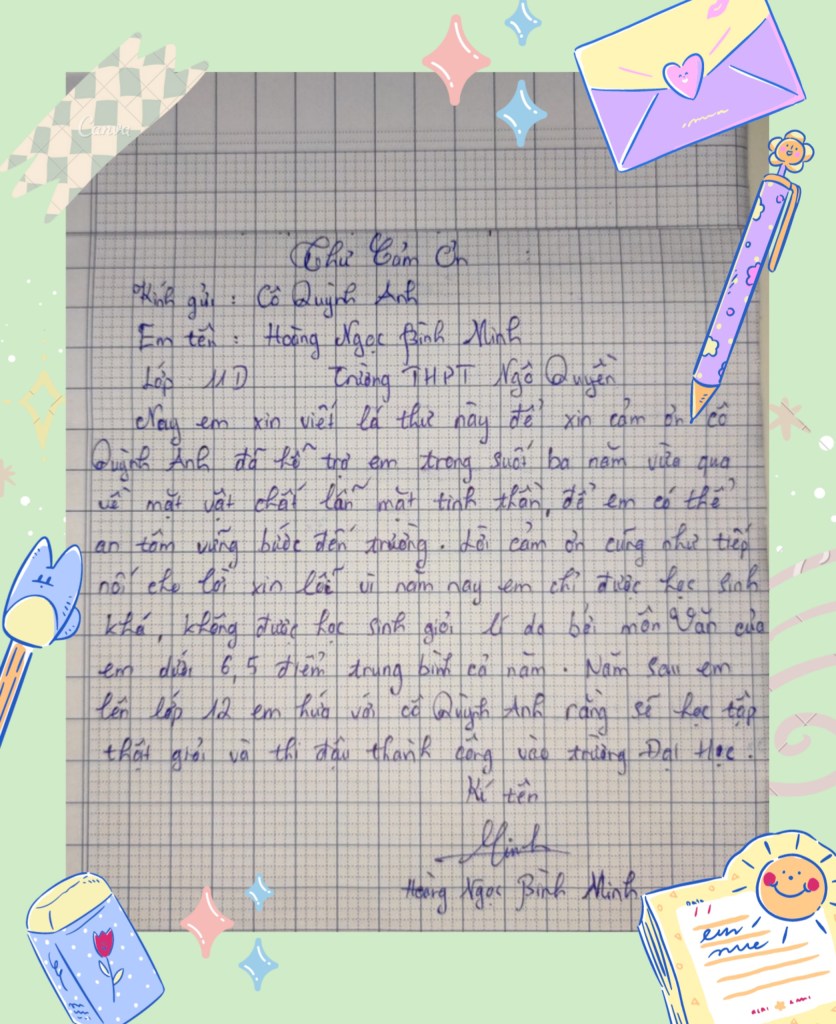 Canva
Thư Cảm Ơn
Kính gửi : Cô Quỳnh Anh
Em tên : Hoàng Ngọc Bình Minh
Lớp 11D Trường THPT Ngô Quyền
Nay em xin viết lá thư này để xin cảm ơn cô
Quỳnh Anh đã hỗ trợ em trong suốt ba năm vừa qua
về mặt vật chất lẫn mặt tinh thần, để em có thể
an tâm vững bước đến trường. Lời cảm ơn cũng như tiếp
nối cho lời xin lỗi vì năm nay em chỉ được học sinh
khá, không được học sinh giỏi lí do bởi môn Văn của
em dưới 6,5 điểm trung bình cả năm. Năm sau em
lên lớp 12 em hứa với cô Quỳnh Anh rằng sẽ học tập
thật giỏi và thi đậu thành công vào trường Đại Học.
Kí tên
Minh
Hoàng Ngọc Bình Minh